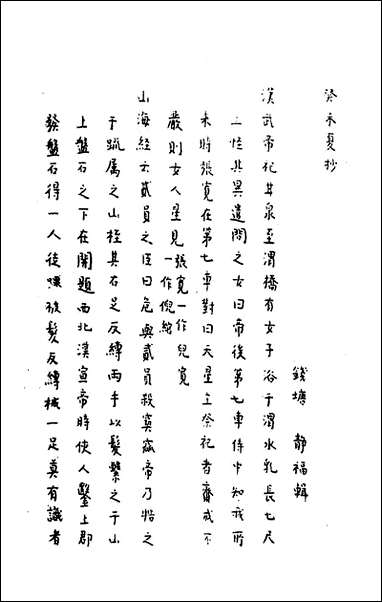 癸未夏抄
錢塘 靜福輯
漢武帝祀甘泉至渭橋有女子浴于渭水乳長七尺
上怪其異遣問之女曰帝後第七車侍中知我所
來時張寬在第七車對曰天星主祭祀者齋戒不
嚴則女人星見張寬一作兒寬一作倪綰
山海經云貳員之臣曰危與貳員殺窫窳帝乃牿之
于疏属之山桎其右足反縛両手以髮繫之于山
上盤石之下在開題西北漢宣帝時使人鑿上郡
發盤石得一人徒裸被髮反縛械一足莫有識者